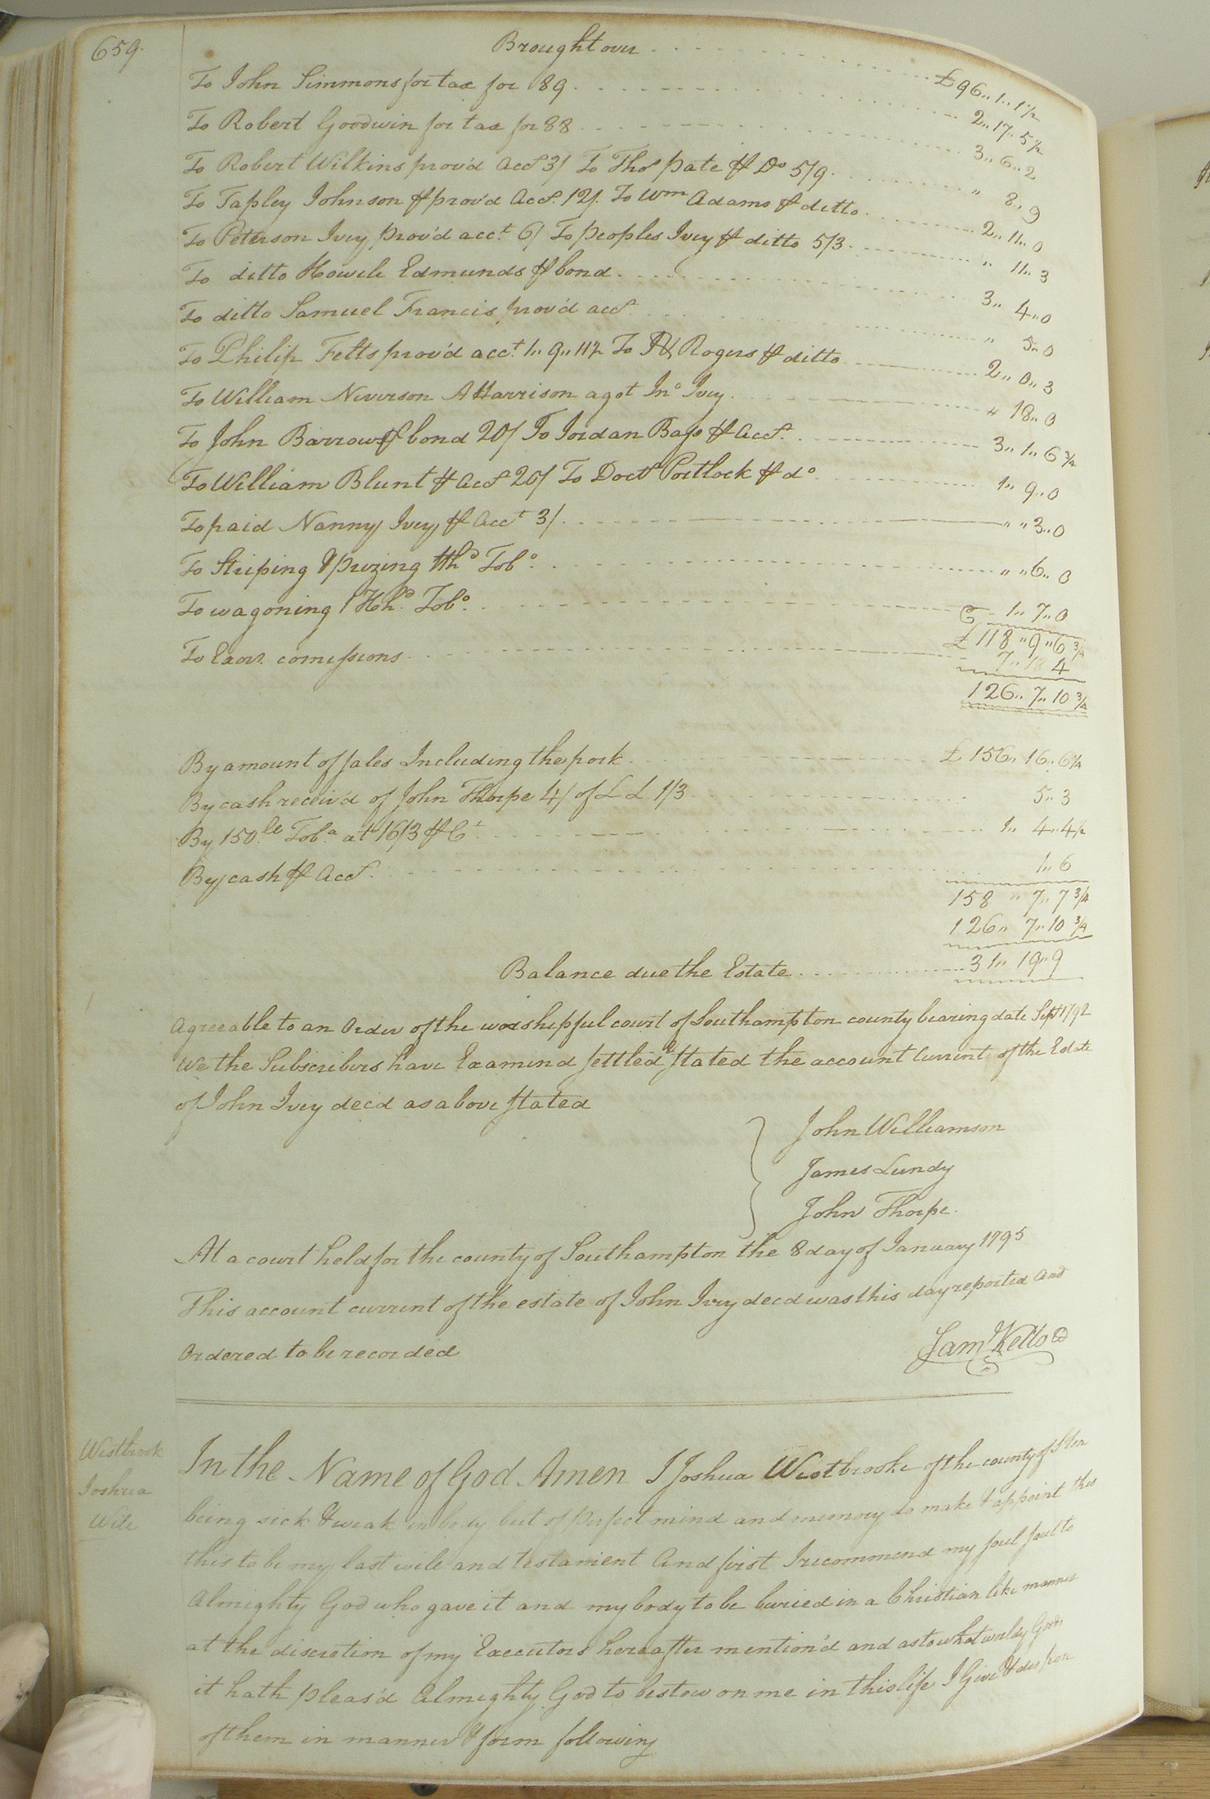 659.
Brought over £96,,1,,1½
To John Simmons for tax for 89. 2,,17,,5½
To Robert Goodwin for tax for 88 3,,6,,2
To Robert Wilkins prov'd acct 3/ To Thos Pate ⅌ Do 5/9. ,, 8,,9
To Tapley Johnson ⅌ prov'd Acct. 12/. To Wm Adams ⅌ ditto 2,,11,,0
To Peterson Ivey prov'd acct. 6/ To Peoples Ivey ⅌ ditto 5/3 ,, 11,,3
To ditto Howell Edmunds ⅌ bond. 3,,4,,0
To ditto Samuel Francis prov'd acct ,, 5,,0
To Philip Felts prov'd acct. 1,,9,,11½ To Rogers ⅌ ditto 2,,0,,3
To William Niverson A Harrison agst Jno Ivey. ,, 18,,0
To John Barrow ⅌ bond 20/ To Jordan Bass ⅌ Acct. 3,,1,,6¾
To William Blunt ⅌ Acct 20/ To Doctr Portlock ⅌ do 1,,9,,0
To paid Nanny Ivey ⅌ Acct 3/ ,, ,,3,,0
To Striping & prizing 1 Hhd Tobo. ,, ,,6,,0
To wagoning 1 Hhd. Tobo. 1,,7,,0
£118,,9,,6¾
To Exors. comissions 7,,18 4
126,,7,,10¾
By amount of sales Including the pork £156,,16,,6¼
By cash receiv'd of John Thorpe 4/ of L L 1/3 5,,3
By 150 lb Toba. at 16/3 ⅌ Ct 1,,4,,4½
By cash ⅌ Acct. 1,,6
158 ,, 7,,7¾
126,, 7,,10¾
Balance due the Estate 31,,19,,9
Agreeable to an Order of the worshipful court of Southampton county bearing date Sept 1792
We the Subscribers have Examind settled & stated the account Current of the Estate
of John Ivey decd as above stated
John Williamson
James Lundy
John Thorpe.
At a court held for the county of Southampton the 8 day of January 1795
This account current of the estate of John Ivey decd was this day reported and
Ordered to be recorded
Saml Kello CC
Westbrook
Joshua
Will
In the Name of God Amen I Joshua Westbrooke of the county of
being sick & weak in body but of perfect mind and memory do make & appoint this
this to be my last will and testament And first I recommend my soul soul to
Almighty God who gave it and my body to be buried in a Christian like manner
at the discretion of my Executors hereafter mention'd and as to what worldly Goods
it hath pleas'd Almighty God to bestow on me in this life I Give & dispose
of them in manner & form following